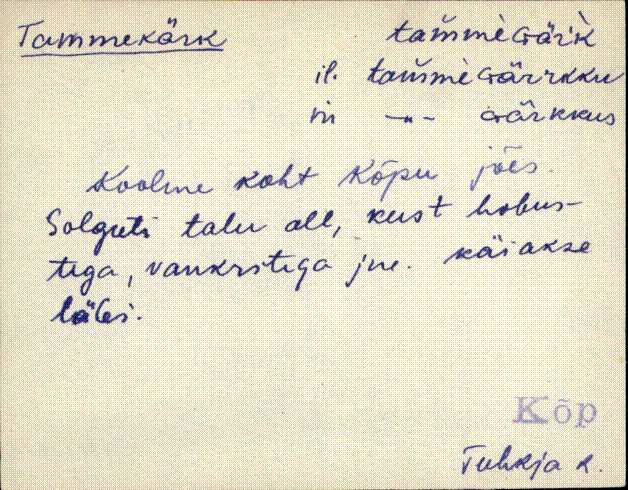 Tammekärk tam̆mèɢär̀k
il. tam̆mèɢärrkku
in —"— ɢärkkus
Koolme koht Kõpu jões
Solguti talu all, kust hobus-
tega, vankritega jne. käiakse
läbi.
Kõp
Tuhkja k.